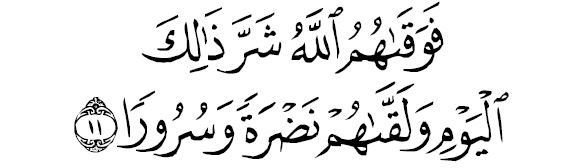 فَوَقَىٰهُمُ ٱللَّهُ شَرَّ ذَٰلِكَ
ٱلْيَوْمِ وَلَقَّىٰهُمْ نَضْرَةً وَسُرُورًا ١١